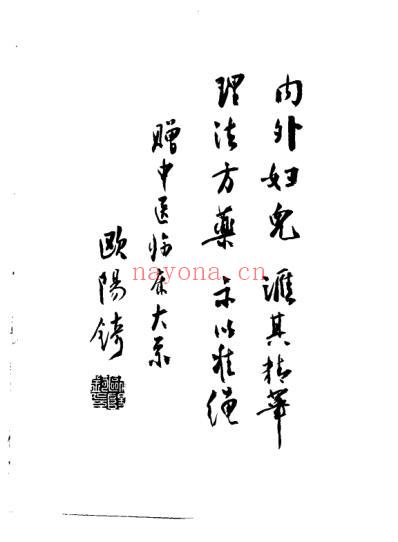 内外妇儿 汇其精华
理法方药 示以准绳
赠中医临床大系
欧阳錡
nayona.cn